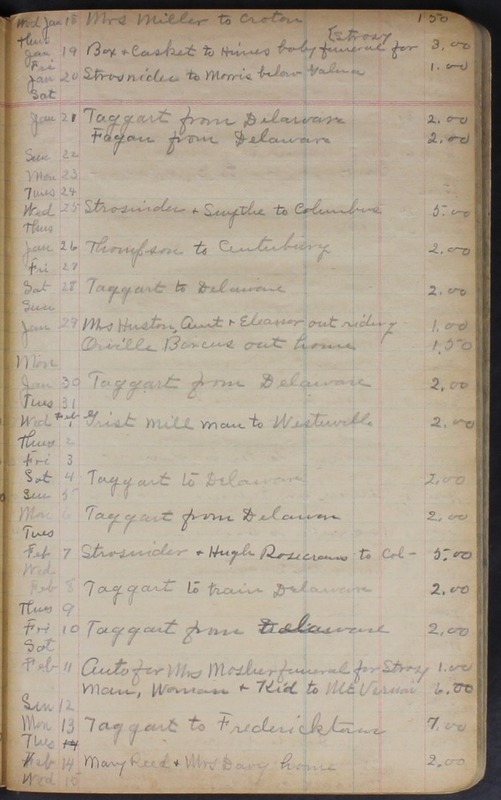 Wed Jan 18 Mrs Miller to Croton 1 50
Thur
Strosy
Jan 19 Box + Casket to Hines baby funeral for 3.00
Fri
Jan 20 Strosnider to Morris below Galena 1.00
Sat
Jan 21 Taggart from Delaware 2.00
Fagan from Delaware 2.00
Sun 22
Mon 23
Tues 24
Wed 25 Strosnider + Smythe to Columbus 5.00
Thus
Jan 26 Thompson to Centerburg 2.00
Fri 27
Sat 28 Taggart to Delaware 2.00
Sun
Jan 29 Mrs Huston, Aunt + Eleanor out riding 1.00
Orville Barcus out home 1.50
Mon
Jan 30 Taggart from Delaware 2.00
Tues 31
Wed Feb 1 Grist Mill man to Westerville 2.00
Thus 2
Fri 3
Sat 4 Taggart to Delaware 2.00
Sun 5
Mon 6 Taggart from Delawar 2.00
Tues
Feb 7 Strosnider + Hugh Rosecrans to Col- 5.00
Wed
Feb 8 Taggart to train Delaware 2.00
Thus 9
Fri 10 Taggart from Delaware 2.00
Sat
Feb 11 Auto for Mrs Mosher funeral for Strosy 1.00
Man, Woman + Kid to Mt Vernon 6.00
Sun 12
Mon 13 Taggart to Fredericktown 7.00
Tues 14
Feb 14 Mary Reed + Mrs Davy home 2.00
Wed 15